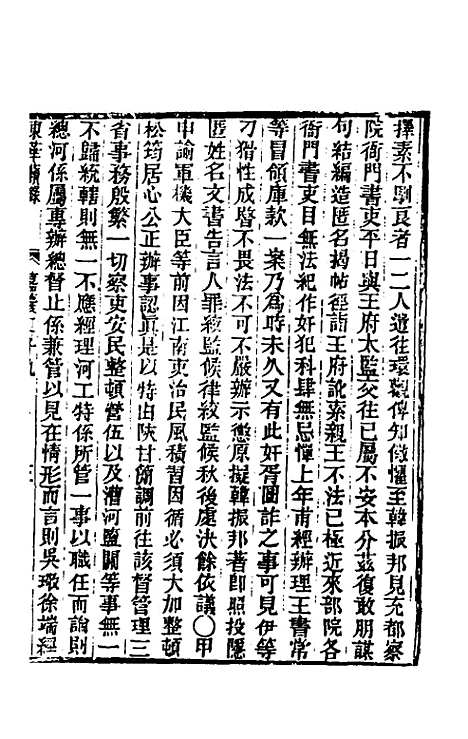 擇素不馴良者一二人遣往環觀俾知儆懼至韓振邦見充都察
院衙門書吏平日與王府太監交往已屬不安本分茲復敢朋謀
句結編造匿名揭帖徑詣王府訛索親王不法已極近來部院各
衙門書吏目無法紀作奸犯科肆無忌憚上年甫經辦理王書常
等冒領庫款一案乃為時未久又有此奸胥圖詐之事可見伊等
刁猾性成皆不畏法不可不嚴辦示懲原擬韓振邦著即照投隱
匿姓名文書告言人罪絞監候律絞監候秋後處決餘依議〇甲
申諭軍機大臣等前因江南吏治民風積習因循必須大加整頓
松筠居心公正辦事認真是以特由陝甘簡調前往該督管理三
省事務殷繁一切察吏安民整頓營伍以及漕河鹽關等事無一
不歸統轄則無一不應經理河工特係所管一事以職任而論則
總河係屬專辦總督止係兼管以見在情形而言則吳璥徐端經
東華續錄 嘉慶二十九